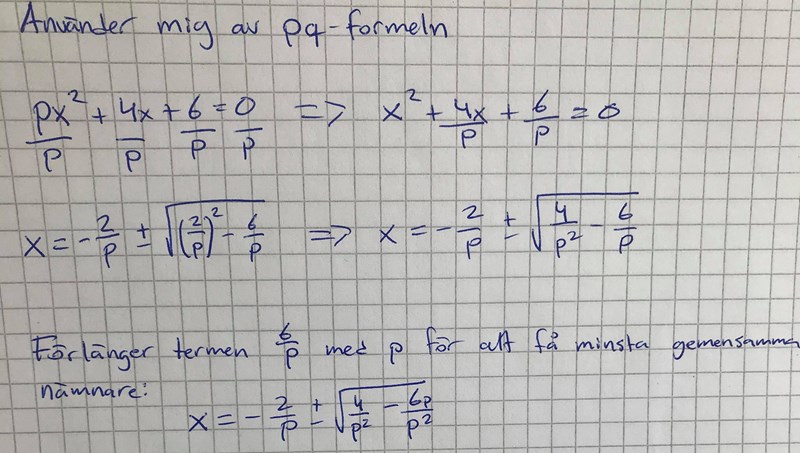 Använder mig av pq-formeln
px²/p + 4x/p + 6/p = 0/p => x² + 4x/p + 6/p = 0
x = -2/p ± √((2/p)² - 6/p) => x = -2/p ± √(4/p² - 6/p)
Förlänger termen 6/p med p för att få minsta gemensamma
nämnare:
x = -2/p ± √(4/p² - 6p/p²)